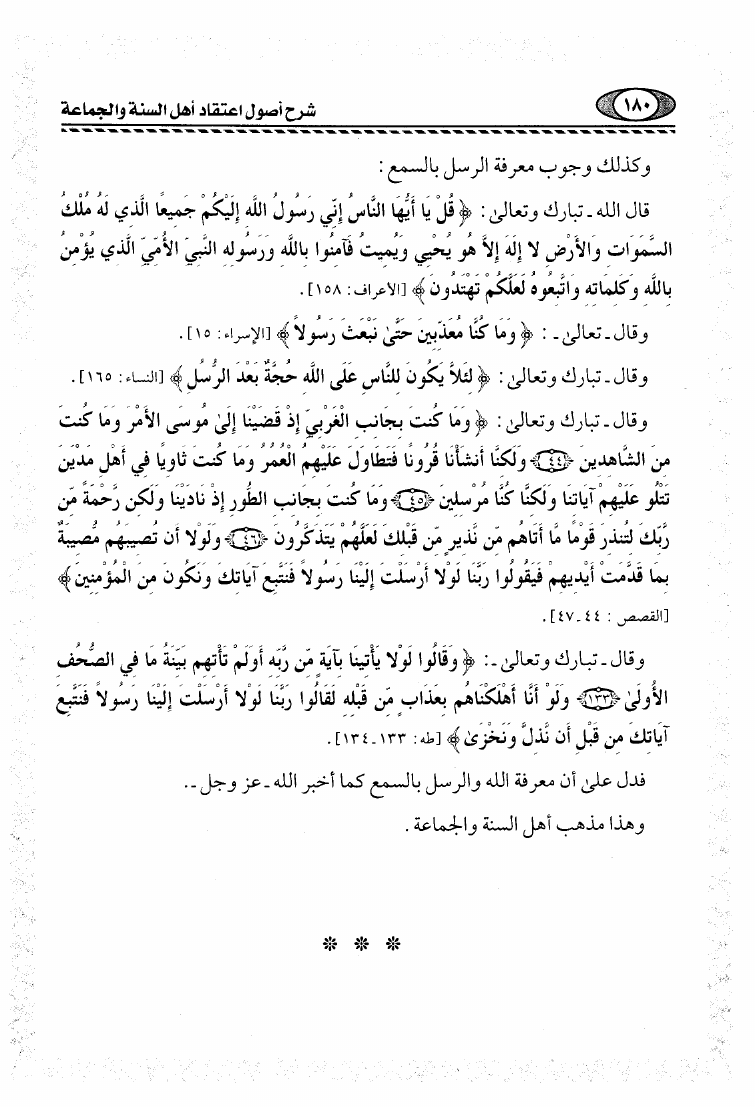 ١٨٠
شرح أصول اعتقاد أهل السنة والجماعة
وكذلك وجوب معرفة الرسل بالسمع :
قال الله ـ تبارك وتعالىٰ : ﴿ قُلْ يَا أَيُّهَا النَّاسُ إِنِّي رَسُولُ اللَّهِ إِلَيْكُمْ جَمِيعًا الَّذِي لَهُ مُلْكُ
السَّمَوَاتِ وَالأَرْضِ لا إِلَهَ إِلاَّ هُوَ يُحْيِي وَيُمِيتُ فَآمِنُوا بِاللَّهِ وَرَسُولِهِ النَّبِيِّ الأُمِّيِّ الَّذِي يُؤْمِنُ
بِاللَّهِ وَكَلِمَاتِهِ وَاتَّبِعُوهُ لَعَلَّكُمْ تَهْتَدُونَ ﴾ [الأعراف: ١٥٨] .
وقال ـ تعالىٰ ـ : ﴿ وَمَا كُنَّا مُعَذِّبِينَ حَتَّىٰ نَبْعَثَ رَسُولاً ﴾ [الإسراء: ١٥] .
وقال ـ تبارك وتعالىٰ : ﴿ لِئَلاَّ يَكُونَ لِلنَّاسِ عَلَى اللَّهِ حُجَّةٌ بَعْدَ الرُّسُلِ ﴾ [النساء: ١٦٥] .
وقال ـ تبارك وتعالىٰ : ﴿ وَمَا كُنتَ بِجَانِبِ الْغَرْبِيِّ إِذْ قَضَيْنَا إِلَىٰ مُوسَى الأَمْرَ وَمَا كُنتَ
مِنَ الشَّاهِدِينَ ﴿٤٤﴾ وَلَكِنَّا أَنشَأْنَا قُرُونًا فَتَطَاوَلَ عَلَيْهِمُ الْعُمُرُ وَمَا كُنتَ ثَاوِيًا فِي أَهْلِ مَدْيَنَ
تَتْلُو عَلَيْهِمْ آيَاتِنَا وَلَكِنَّا كُنَّا مُرْسِلِينَ ﴿٤٥﴾ وَمَا كُنتَ بِجَانِبِ الطُّورِ إِذْ نَادَيْنَا وَلَكِن رَّحْمَةً مِّن
رَّبِّكَ لِتُنذِرَ قَوْمًا مَّا أَتَاهُم مِّن نَّذِيرٍ مِّن قَبْلِكَ لَعَلَّهُمْ يَتَذَكَّرُونَ ﴿٤٦﴾ وَلَوْلا أَن تُصِيبَهُم مُّصِيبَةٌ
بِمَا قَدَّمَتْ أَيْدِيهِمْ فَيَقُولُوا رَبَّنَا لَوْلا أَرْسَلْتَ إِلَيْنَا رَسُولاً فَنَتَّبِعَ آيَاتِكَ وَنَكُونَ مِنَ الْمُؤْمِنِينَ ﴾
[القصص : ٤٤ـ٤٧] .
وقال ـ تبارك وتعالىٰ ـ : ﴿ وَقَالُوا لَوْلا يَأْتِينَا بِآيَةٍ مِّن رَّبِّهِ أَوَلَمْ تَأْتِهِم بَيِّنَةُ مَا فِي الصُّحُفِ
الأُولَىٰ ﴿١٣٣﴾ وَلَوْ أَنَّا أَهْلَكْنَاهُم بِعَذَابٍ مِّن قَبْلِهِ لَقَالُوا رَبَّنَا لَوْلا أَرْسَلْتَ إِلَيْنَا رَسُولاً فَنَتَّبِعَ
آيَاتِكَ مِن قَبْلِ أَن نَّذِلَّ وَنَخْزَىٰ ﴾ [طه: ١٣٣ـ١٣٤] .
فدل علىٰ أن معرفة الله والرسل بالسمع كما أخبر الله ـ عز وجل ـ.
وهذا مذهب أهل السنة والجماعة .
* * *